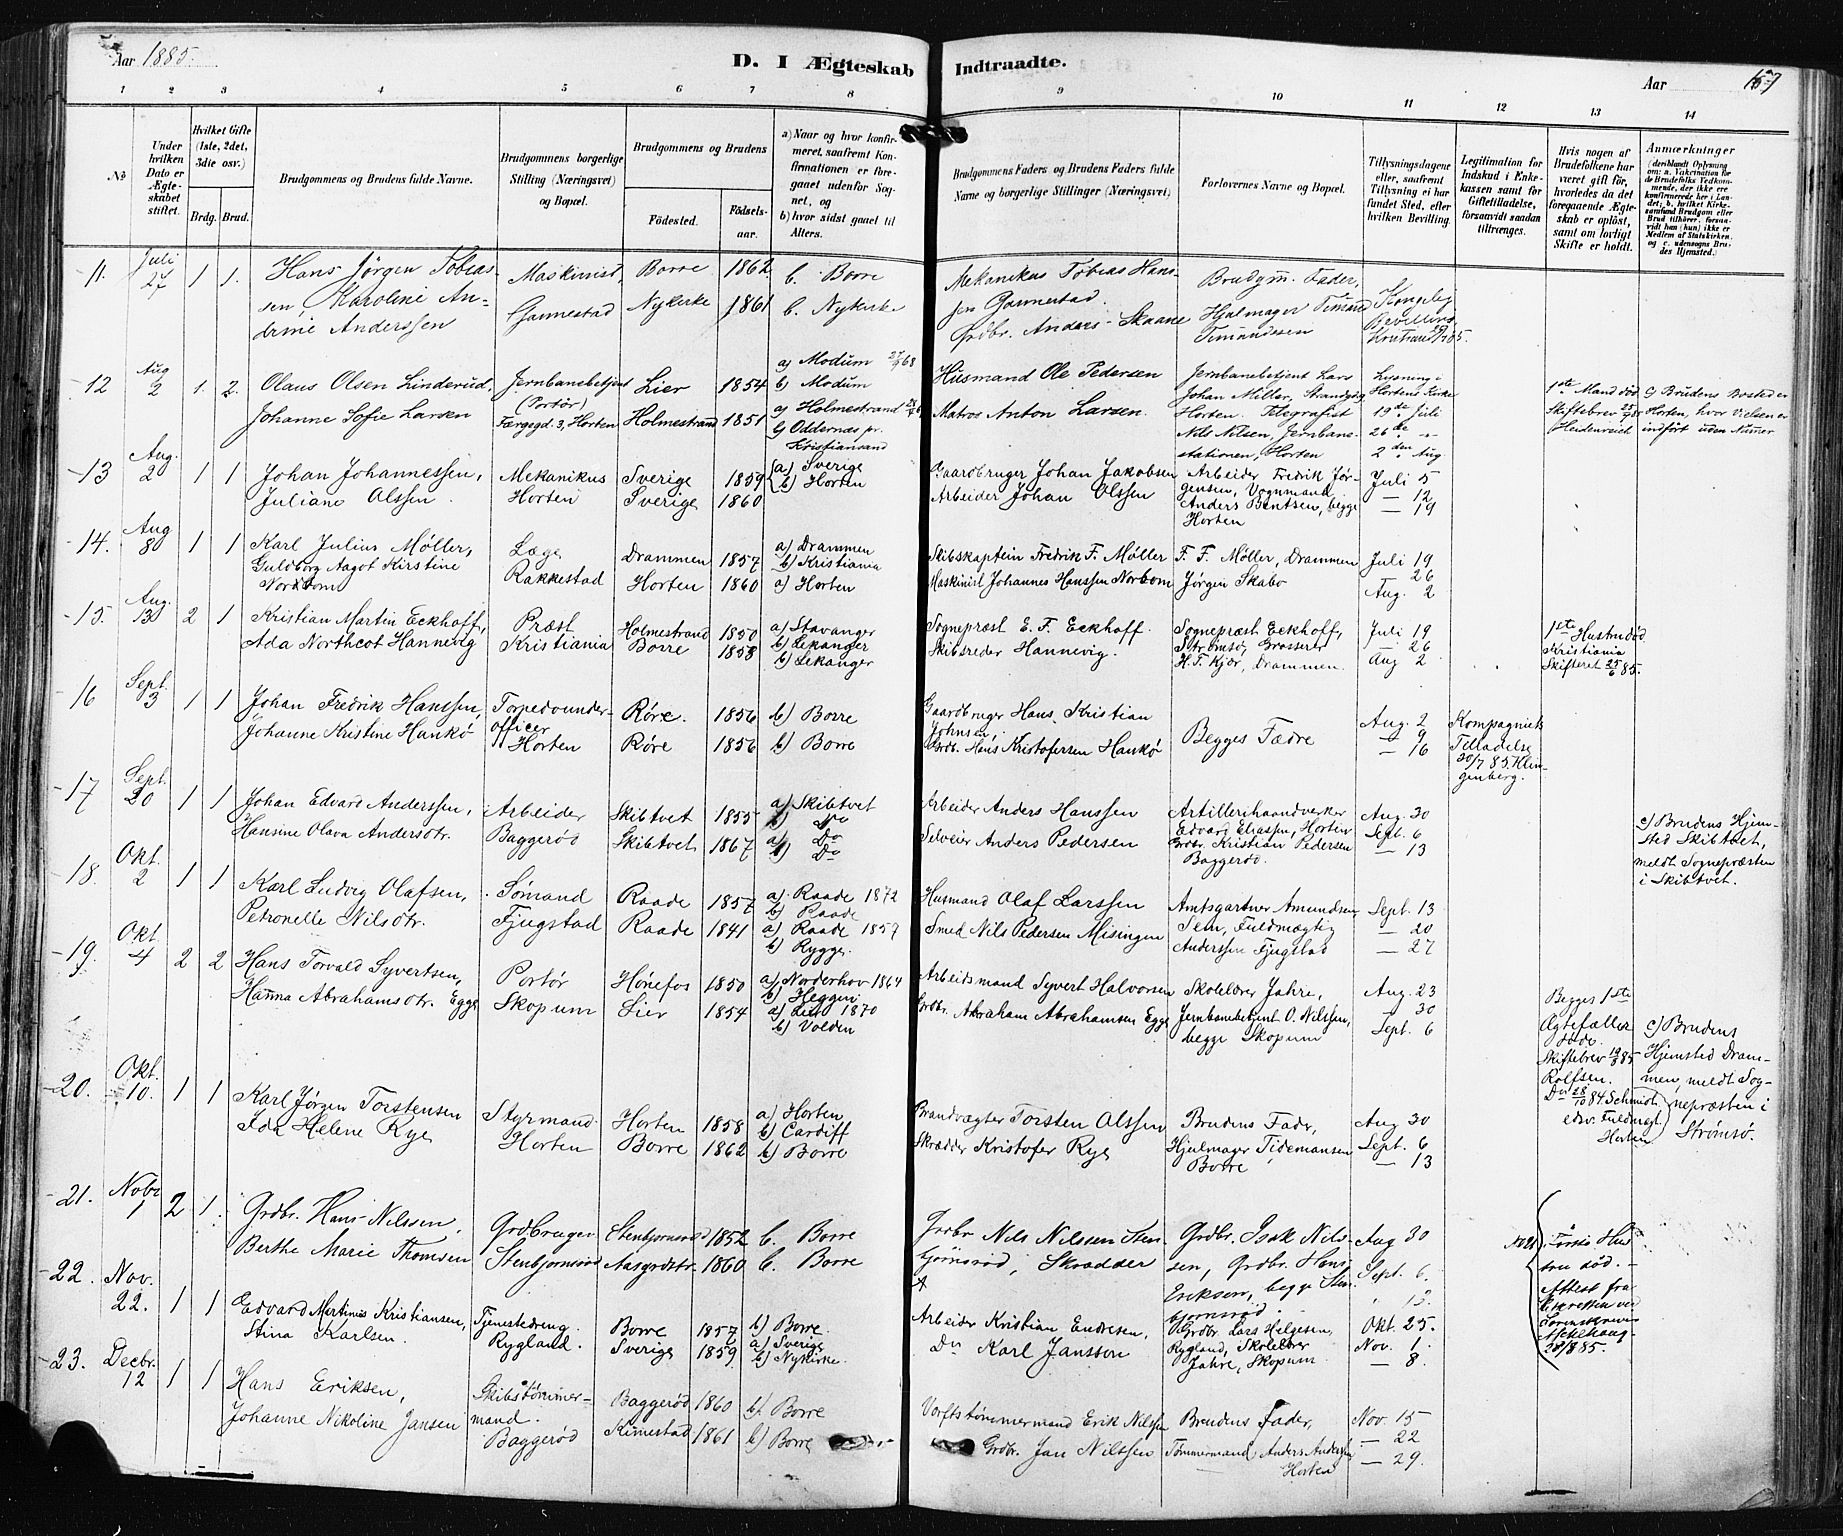 Aar 1885.
D. I Ægteskab Indtraadte.
Aar
157
1 2 3 4 5 6 7 8 9 10 11 12 13 14
No
Under hvilken Dato er Ægteskabet stiftet.
Hvilket Gifte (1ste, 2det, 3die osv.)
Brdg. Brud.
Brudgommens og Brudens fulde Navne.
Brudgommens borgerlige Stilling (Næringsvei) og Bopæl.
Brudgommens og Brudens
Fødested. Fødselsaar.
a) Naar og hvor konfirmeret, saafremt Konfirmationen er foregaaet udenfor Sognet, og
b) hvor sidst gaaet til Alters.
Brudgommens Faders og Brudens Faders fulde Navne og borgerlige Stillinger (Næringsvei)
Forlovernes Navne og Bopæl.
Tillysningsdagene eller, saafremt Tillysning ei har fundet Sted, efter hvilken Bevilling.
Legitimation for Indskud i Enkekassen samt for Giftetilladelse, forsaavidt saadan tiltrænges.
Hvis nogen af Brudefolkene har været gift før, hvorledes da det foregaaende Ægteskab er opløst, samt om lovligt Skifte er holdt.
Anmærkninger
(deriblandt Oplysning om: a. Vaccination for de Brudefolks Vedkommende, der ikke ere konfirmerede her i Landet; b. hvilket Kirkesamfund Brudgom eller Brud tilhører, forsaavidt han (hun) ikke er Medlem af Statskirken, og c. udensogns Brudes Hjemsted.)
11. Juli 27 1 1.
Hans Jørgen Tobiassen, Karoline Andrine Anderssen
Maskinist, Gannestad
Borre 1862 b. Borre
Nykirke 1861 b. Nykirke
Mekanikus Tobias Hanssen Gannestad.
Grdbr. Anders Skaane
Brudgm. Fader,
Hjulmager Timand Timandssen
Kongelig Bevilling
12 Aug 2 1. 2.
Olaus Olsen Linderud,
Johanne Sofie Larsen
Jernbanebetjent (Portør)
Færgegd. 3, Horten
Lier 1854 a) Modum b) Modum
Holmestrand 1851 a) Holmestrand b) Oddernes pr. Kristiansand
Husmand Ole Pedersen
Matros Anton Larsen.
Jernbanebetjent Lars Johan Miller, Strandgdg Horten. Telegrafist Nils Nilsen, Jernbanestationen, Horten
Lysning i Hortens Kirke
19de Juli
26de
2den Aug
1ste Mand død
Skiftebrev
Heidenreich
c) Brudens Bosted er Horten, hvor Vielsen er indført uden Numer
13 Aug. 2 1 1
Johan Johannessen,
Juliane Olssen.
Mekanikus Horten
Sverige 1859 a) Sverige
Sverige 1860 b) Horten
Gaardbruger Johan Jakobsen
Arbeider Johan Olssen
Arbeider Fredrik Jørgensen, Vognmand Anders Bentsen, begge Horten
Juli 5
— 12
— 19
14. Aug 8 1 1
Karl Julius Møller,
Guldborg Aagot Kirstine Norbom
Læge Rakkestad
Drammen 1857 a) Drammen b) Kristiania
Horten 1860 a) Horten
Skibskaptein Fredrik F. Møller
Maskinist Johannes Hanssen Norbom
F. F. Møller, Drammen
Jørgen Skabo
Juli 19
26
Aug. 2
15. Aug. 13 2 1
Kristian Martin Eckhoff,
Ada Northcot Hannevig
Præst Kristiania
Holmestrand 1850 a) Stavanger b) Lekanger
Borre 1858 b) Lekanger
Sognepræst E. F. Eckhoff.
Skibsreder Hannevig.
Sognepræst Eckhoff, Strømsø, Grosserer H. F. Kjær, Drammen.
Juli 19
— 26
Aug 2
1ste Hustru død
Kristiania
Skifteret 25/6 85.
16 Sept. 3 1 1
Johan Fredrik Hanssen,
Johanne Kristine Hankø
Torpedounderofficer
Horten
Røre. 1856 b) Borre
Røre 1856 b) Borre
Gaardbruger Hans Kristian Johnsen,
Grdb. Hans Kristofersen Hankø
Begges Fædre
Aug. 2
— 9
— 16
Kompagniets Tilladelse 30/7 85. Klingenberg.
17 Sept. 20 1 1
Johan Edvard Anderssen,
Hansine Olava Andersdtr.
Arbeider Baggerød
Skibtvet 1855 a) Skibtvet b) Do
Skibtvet 1867 a) Do b) Do
Arbeider Anders Hanssen
Selveier Anders Pedersen
Artillerihaandverker Edvard Eliassen, Horten
Grdbr. Kristian Pedersen Baggerød.
Aug. 30
Sept. 6
— 13
c) Brudens Hjemsted Skibtvet, meldt Sognepræsten i Skibtvet.
18. Okt 2 1 1
Karl Ludvig Olafsen,
Petronelle Nilsdtr.
Sømand Fjugstad
Raade 1857 a) Raade 1872 b) Raade
Raade 1841 a) Raade 1857 b) Rygge.
Husmand Olaf Larssen
Smed Nils Pedersen Misingen
Amtsgartner Amundsen Sem, Fuldmægtig Anderssen Fjugstad
Sept. 13
— 20
— 27
19. Okt. 4 2 2
Hans Torvald Syvertsen,
Hanna Abrahamsdtr. Egge
Portør Skopum
Hønefos 1850 a) Norderhov 1864 b) Heggen
Lier 1854 a) Lier 1870 b) Volden
Arbeidsmand Syvert Halvorsen
Grdbr. Abraham Abrahamsen Egge
Skolelærer Jahre,
Jernbanebetjent O. Nilssen, begge Skopum
Aug. 23
— 30
Sept. 6
Begges 1ste Ægtefæller døde.
Skiftebrev
Rolfsen.
Do 28/10 84. Schmidt edsv. Fuldmægt. Horten
c) Brudens Hjemsted Drammen, meldt Sognepræsten i Strømsø.
20. Okt. 10. 1 1
Karl Jørgen Torstensen
Ida Helene Rye
Styrmand Horten
Horten 1858 a) Horten b) Cardiff
Borre 1862 b) Borre
Brandvagter Torsten Olssen
Skrædder Kristofer Rye
Brudens Fader,
Hjulmager Tidemansen Borre
Aug 30
Sept. 6
— 13
21. Nobr 1 2 1.
Grdbr. Hans Nilssen,
Berthe Marie Thomsen
Grdbruger Stenbjørnsrød
Stenbjørnsrød 1852 b. Borre
Aasgrdstr. 1860 b. Borre
Grdbr Nils Nilssen Stenbjørnsrød, Skrædder
Grdbr. Isak Nilssen, Grdbr. Hans Eriksen, begge Stenbjørnsrød.
Aug 30
Sept. 6.
" 13.
No 21. Første Hustru død. — Attest fra Skifteretten ved Sorenskriver
22. Nov. 22. 1 1
Edvard Martinus Kristiansen,
Stina Karlsen.
Tjenestedreng. Rygland.
Borre 1857 b) Borre.
Sverige 1859 a) Sverige b) Nykirke.
Arbeider Kristian Endresen,
Do Karl Jansson
Grdbr. Lars Helgesen, Rygland, Skolelærer Jahre, Skopum
Okt. 25.
Nov. 1.
— 8.
23. Decbr. 12 1 1
Hans Eriksen,
Johanne Nikoline Jansen
Skibstømmermand. Baggerød
Baggerød 1860 b) Borre
Kimestad 1861 b) Borre
Verftstømmermand Erik Nilssen
Grdbr. Jan Nilssen
Brudens Fader,
Tømmermand Anders Andersen Horten
Nov. 15
— 22
— 29.